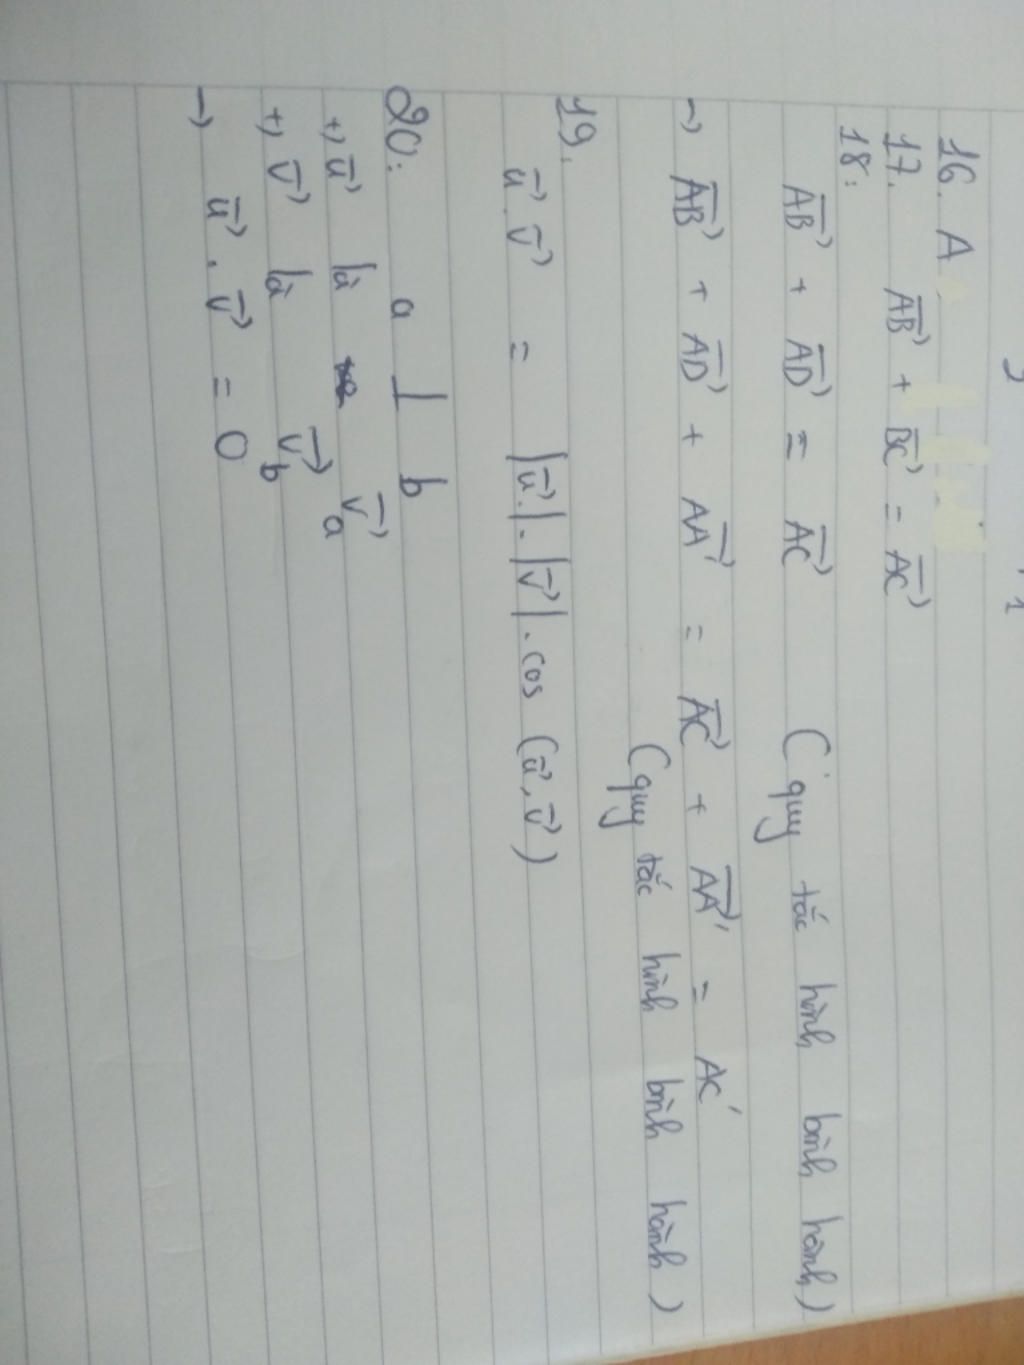 16. A
17. AB⃗ + BC⃗ = AC⃗
18:
AB⃗ + AD⃗ = AC⃗ (quy tắc hình bình hành)
→ AB⃗ + AD⃗ + AA'⃗ = AC⃗ + AA'⃗ = AC'
(quy tắc hình bình hành)
19.
u⃗ . v⃗ = |u⃗|.|v⃗|.cos (u⃗, v⃗)
20: a ⊥ b
+) u⃗ là v⃗a
+) v⃗ là v⃗b
→ u⃗ . v⃗ = 0